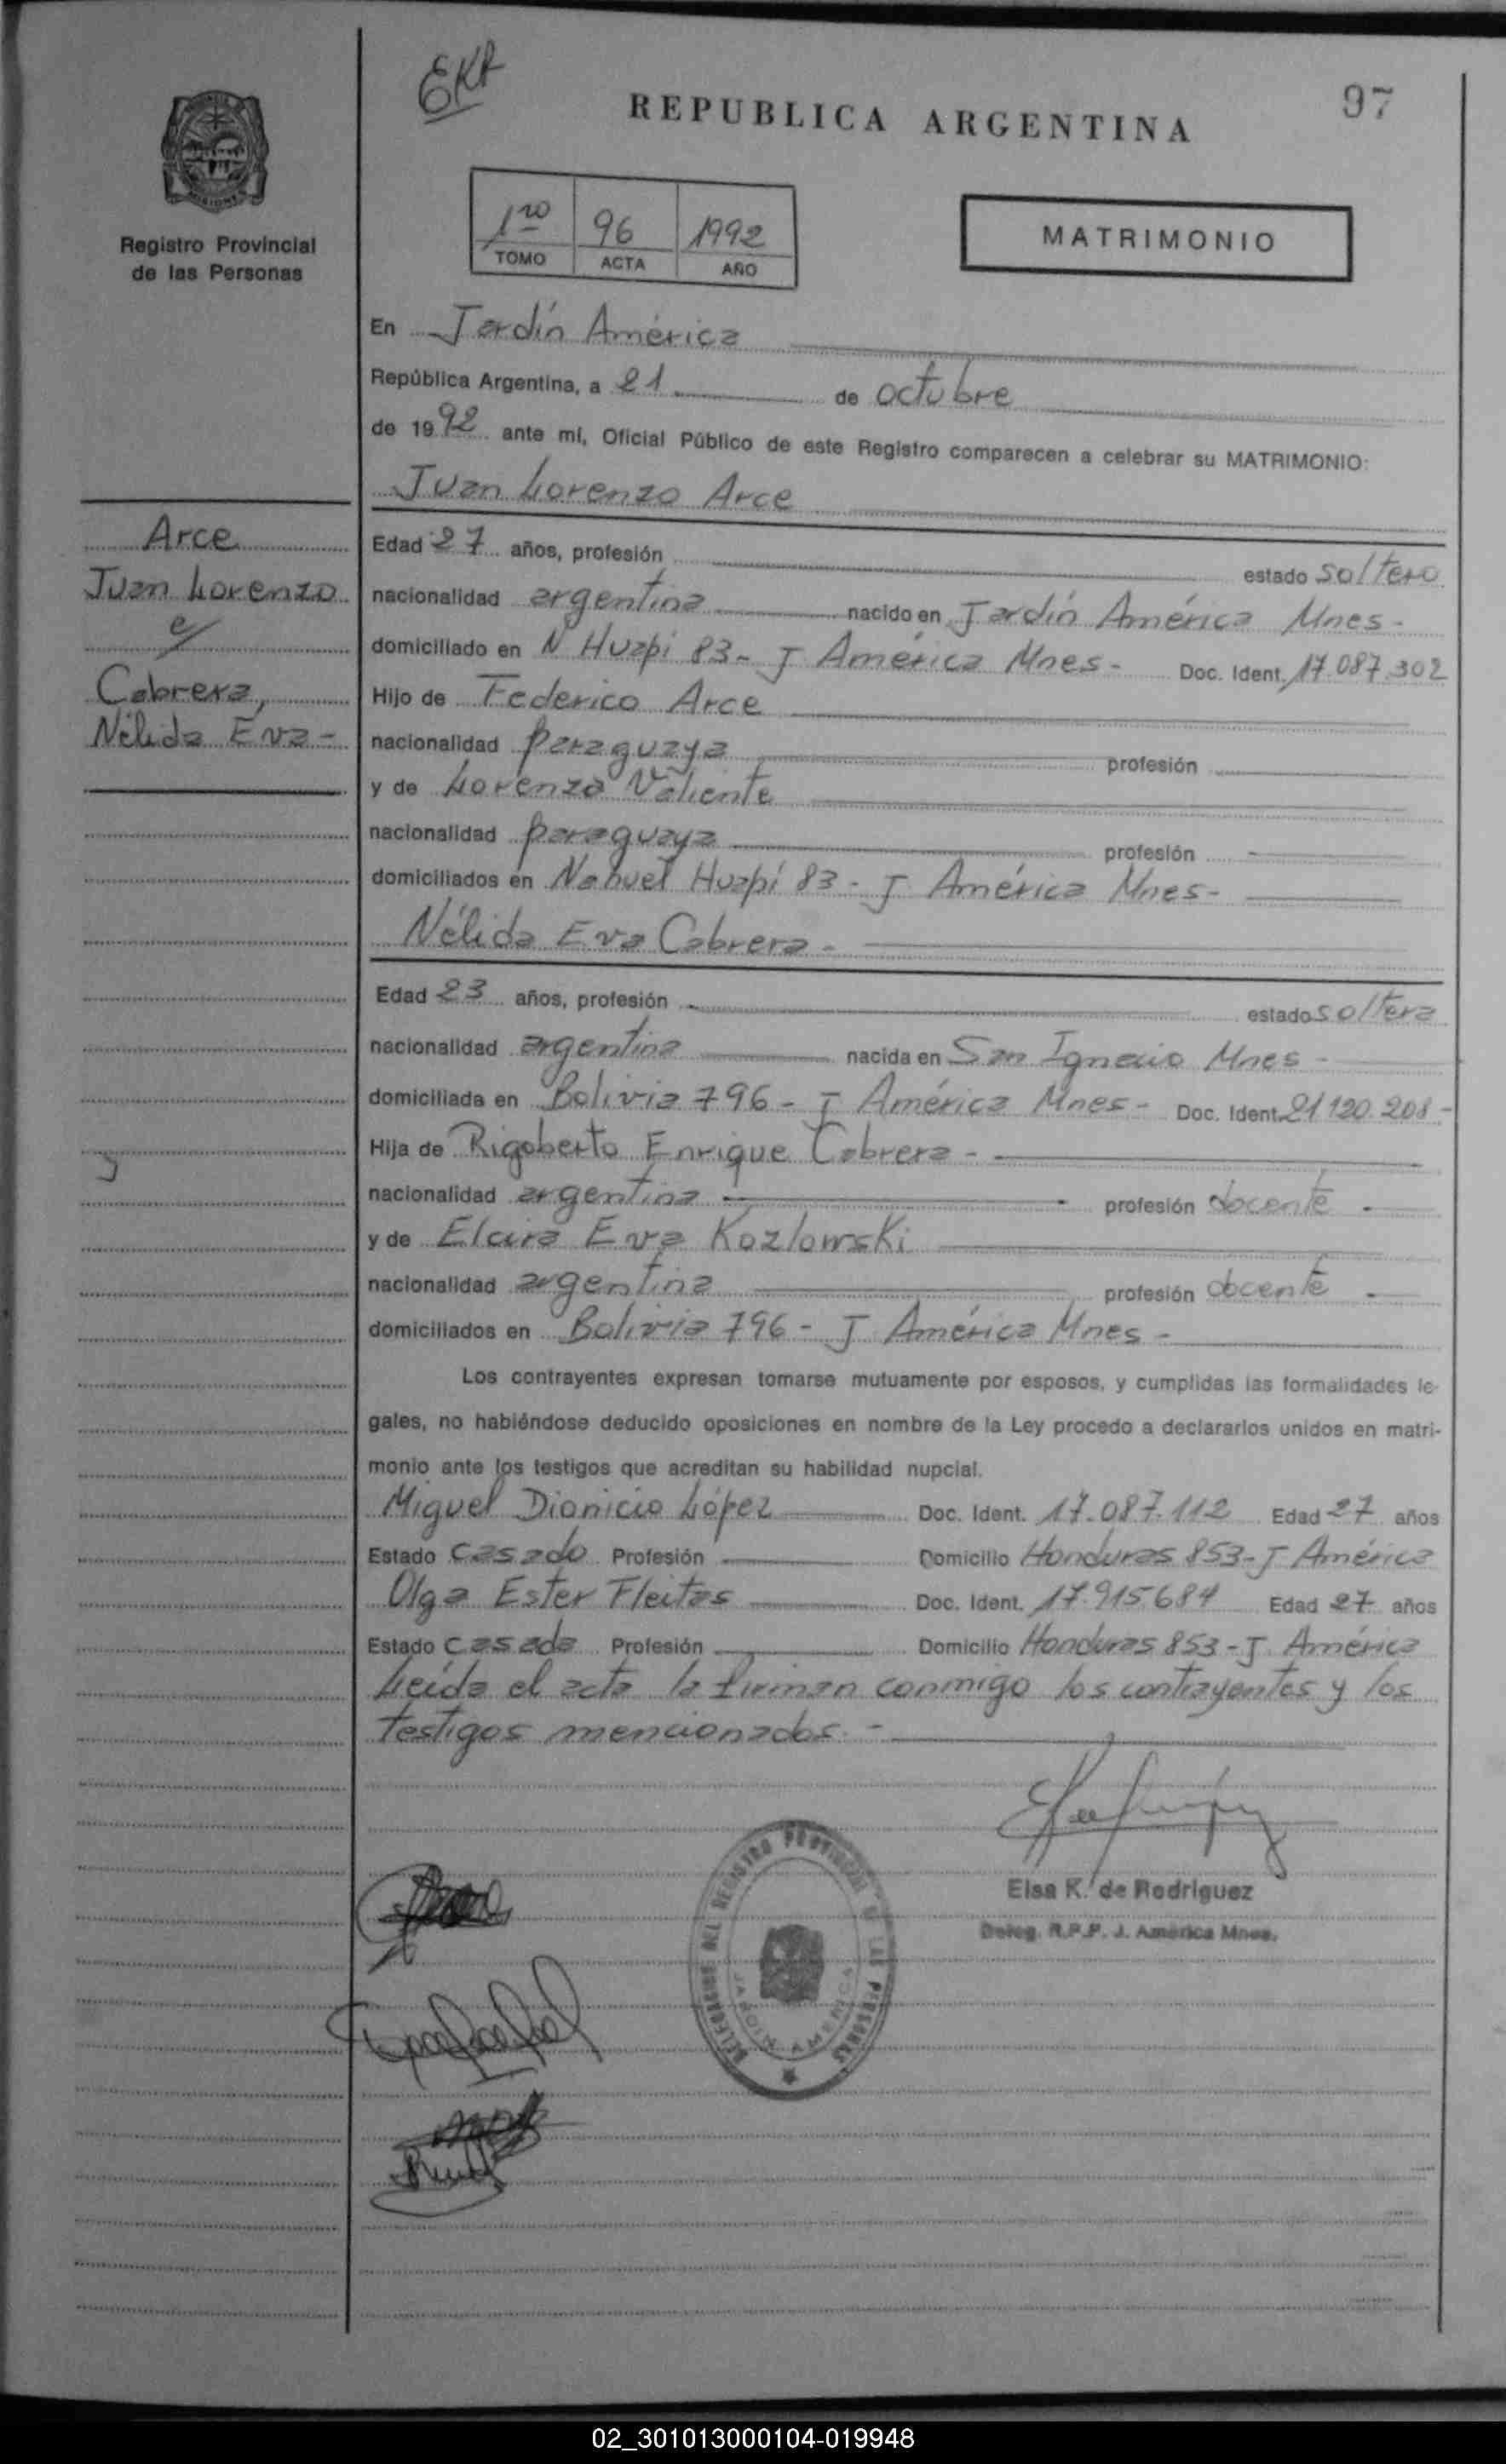 EKR
REPUBLICA ARGENTINA
97
Registro Provincial
de las Personas
1ro 96 1992
TOMO ACTA AÑO
MATRIMONIO
En Jardín América
República Argentina, a 21 de octubre
de 1992 ante mí, Oficial Público de este Registro comparecen a celebrar su MATRIMONIO:
Juan Lorenzo Arce
Arce
Juan Lorenzo
c/
Cabrera,
Nélida Eva -
Edad 27 años, profesión estado soltero
nacionalidad argentina nacido en Jardín América Mnes-
domiciliado en N Huapi 83- J América Mnes- Doc. Ident. 17.087.302
Hijo de Federico Arce
nacionalidad paraguaya profesión
y de Lorenza Valiente
nacionalidad paraguaya profesión
domiciliados en Nahuel Huapí 83- J América Mnes-
Nélida Eva Cabrera-
Edad 23 años, profesión estado soltera
nacionalidad argentina nacida en San Ignacio Mnes-
domiciliada en Bolivia 796- J América Mnes- Doc. Ident. 21.120.208-
Hija de Rigoberto Enrique Cabrera-
nacionalidad argentina profesión docente
y de Elcira Eva Kozlowski
nacionalidad argentina profesión docente
domiciliados en Bolivia 796- J América Mnes-
Los contrayentes expresan tomarse mutuamente por esposos, y cumplidas las formalidades le-
gales, no habiéndose deducido oposiciones en nombre de la Ley procedo a declararlos unidos en matri-
monio ante los testigos que acreditan su habilidad nupcial.
Miguel Dionicio López Doc. Ident. 17.087.112 Edad 27 años
Estado casado Profesión Domicilio Honduras 853- J América
Olga Ester Fleitas Doc. Ident. 17.915.684 Edad 27 años
Estado casada Profesión Domicilio Honduras 853- J. América
Leída el acta la firman conmigo los contrayentes y los
testigos mencionados.-
Elsa K. de Rodriguez
Deleg. R.P.P. J. América Mnes.
DEL REGISTRO PROVINCIAL DE LAS PERSONAS
JARDIN AMERICA
02_301013000104-019948